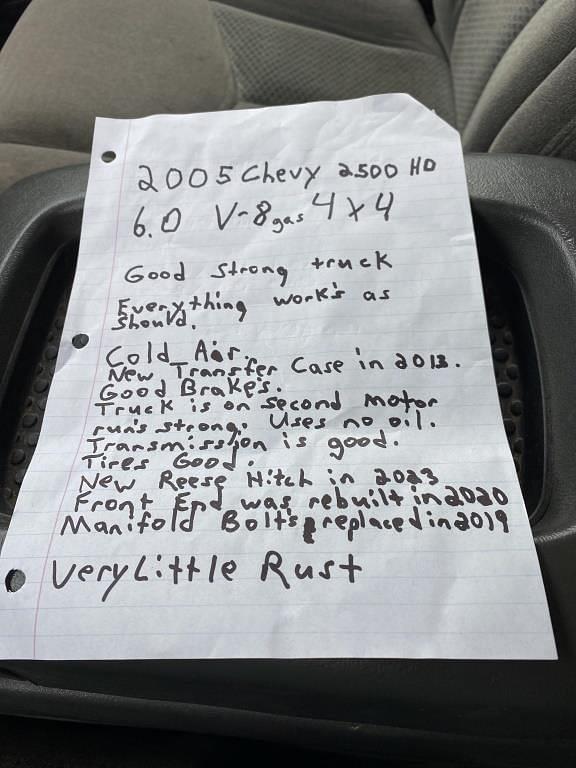 2005 Chevy 2500 HD
6.0 V-8 gas 4x4
Good strong truck
Everything work's as
should.
Cold Air.
New Transfer Case in 2013.
Good Brake's.
Truck is on second motor
run's strong. Uses no oil.
Transmission is good.
Tires Good.
New Reese Hitch in 2023
Front End was rebuilt in 2020
Manifold Bolt's replaced in 2019
Very Little Rust